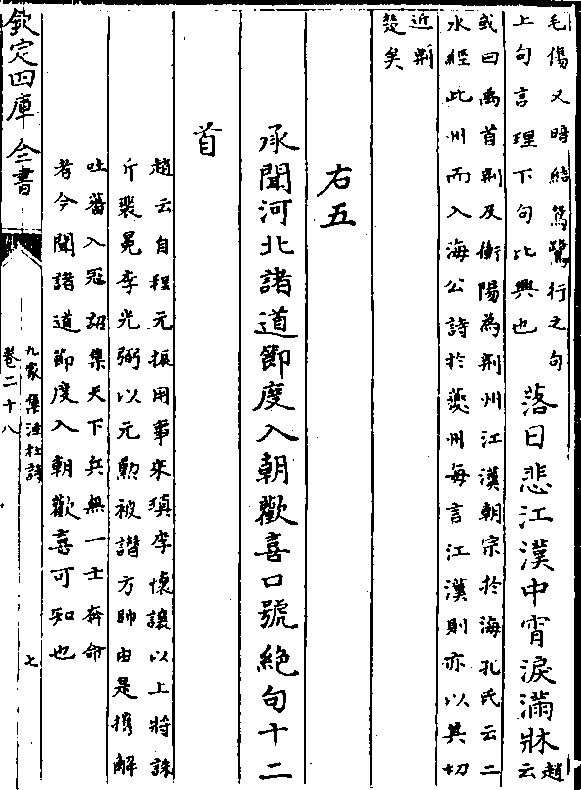 毛傷又暗結鴛鷺行之句
上句言理下句比興也
落日悲江漢中宵淚滿牀
趙云
或曰禹首荆及衡陽為荆州江漢朝宗於海孔氏云二
水經此州而入海公詩於夔州每言江漢則亦以其切
近荆
楚矣
右五
承聞河北諸道節度入朝歡喜口號絶句十二
首
趙云自程元振用事來瑱李懷讓以上將誅
斤裴冕李光弼以元勲被譖方帥由是擕解
吐蕃入冦詔集天下兵無一士奔命
者今聞諸道節度入朝歡喜可知也
欽定四庫全書
九家集注杜詩
卷二十八
七